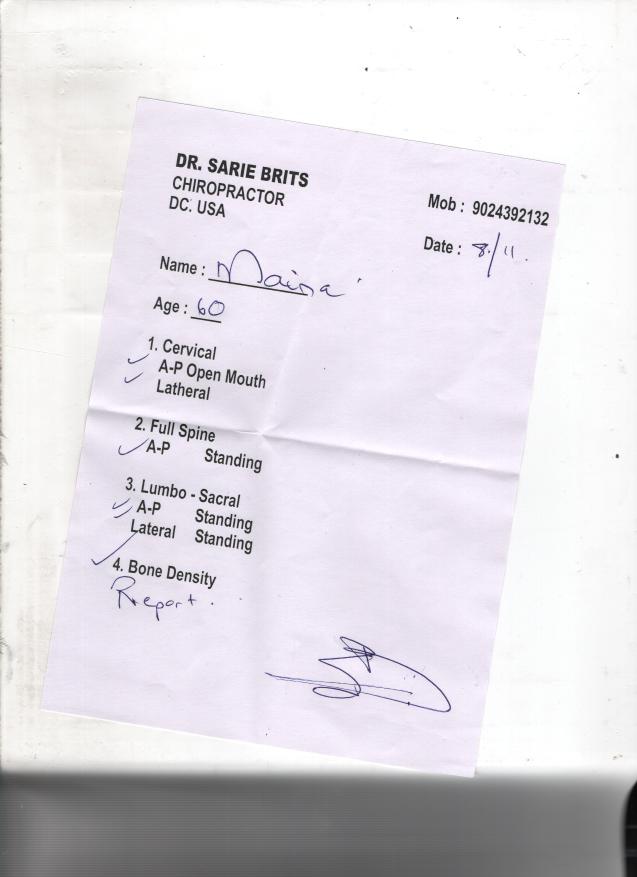 DR. SARIE BRITS
CHIROPRACTOR
DC. USA
Mob : 9024392132
Date : 8/11.
Name : Maina
Age : 60
1. Cervical
A-P Open Mouth
Latheral
2. Full Spine
A-P Standing
3. Lumbo - Sacral
A-P Standing
Lateral Standing
4. Bone Density
Report.